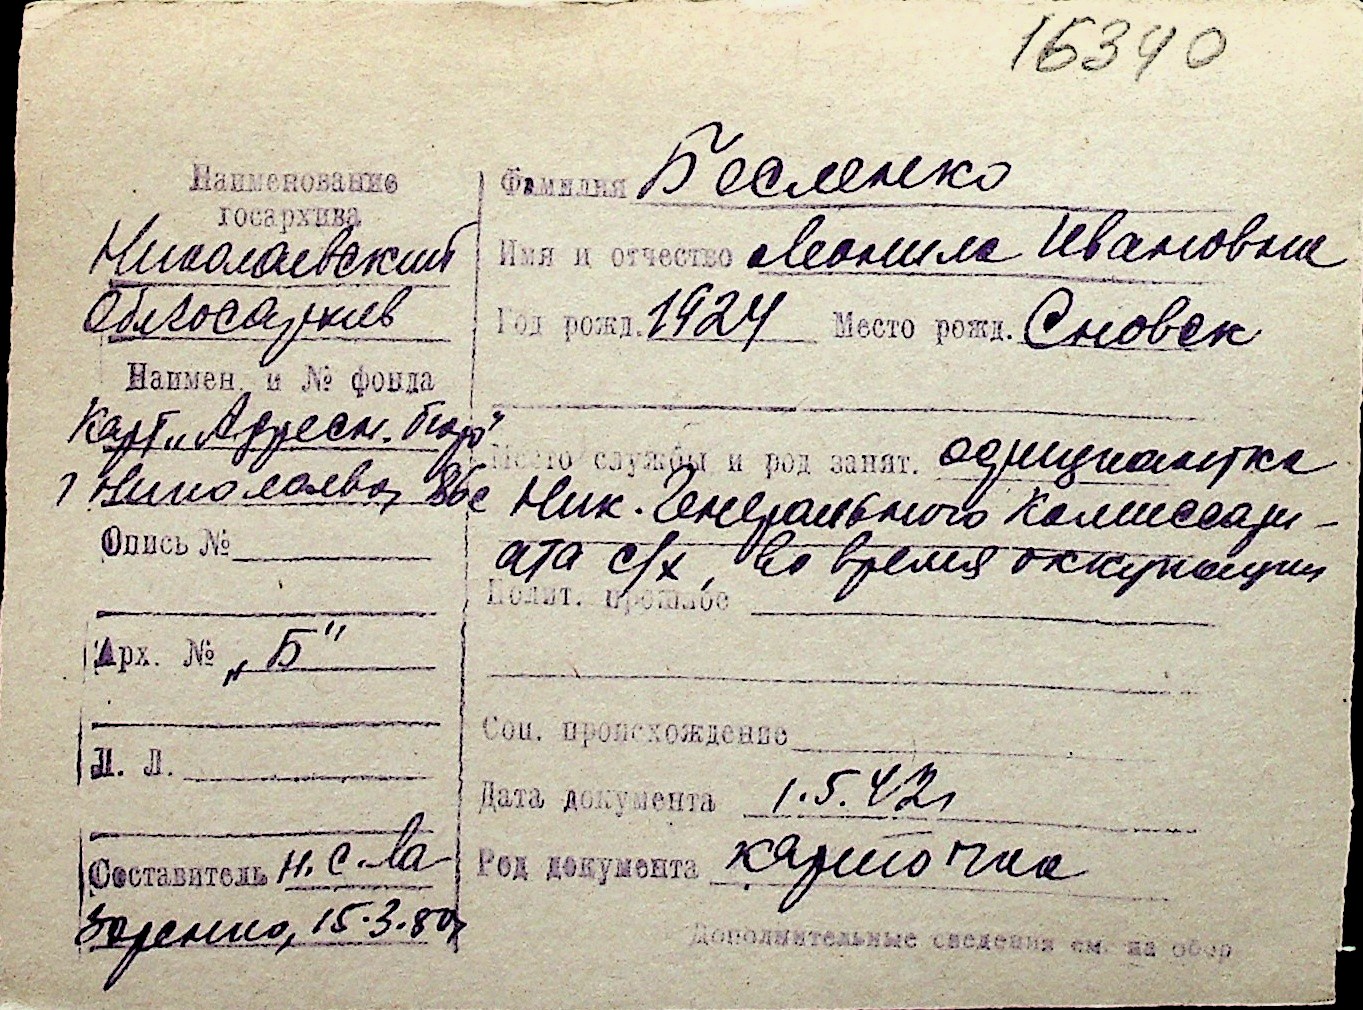 16340
Наименование
госархива
Николаевский
Облгосархив
Наимен. и № фонда
Карт. „Адресн. бюро"
г Николаева,
Опись №
Арх. № „Б"
Л. Л.
Составитель Н. С. Ла-
заренко, 15.3.80г
Фамилия Бесленко
Имя и отчество Ивановна
Год рожд. 1924 Место рожд. Сновск
Место службы и род занят.
Ник. Генерального Комиссари-
ата с/х, во время оккупации
Полит. прошлое
Соц. происхождение
Дата документа 1.5.42г
Род документа карточка
Дополнительные сведения см. на обор